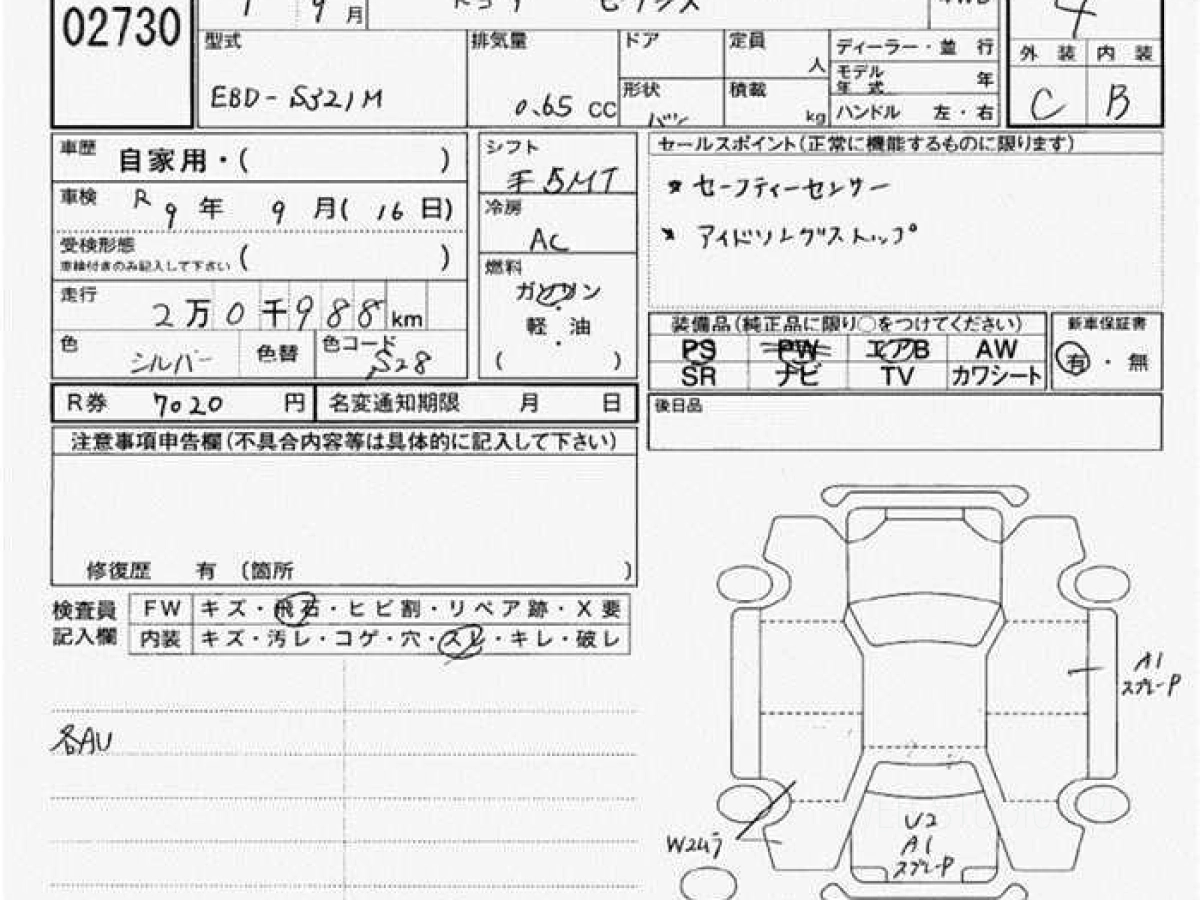 02730
9月
型式 EBD-S321M
排気量 0.65 CC
ドア
定員 人
形状 バン
積載 kg
ディーラー・並行
モデル年式 年
ハンドル 左・右
4
外装 内装
C B
車歴 自家用・( )
車検 R 9年 9月( 16日)
受検形態
車検付きのみ記入して下さい ( )
走行 2万0千988km
色 シルバー
色替
色コード S28
シフト
5MT
冷房
AC
燃料
ガソリン
・
軽油
・
( )
セールスポイント(正常に機能するものに限ります)
* セーフティーセンサー
* アイドリングストップ
装備品(純正品に限り○をつけてください)
PS PW エアB AW
SR ナビ TV カワシート
新車保証書
有・無
後日品
R券 7020円
名変通知期限 月 日
注意事項申告欄(不具合内容等は具体的に記入して下さい)
修復歴 有 (箇所 )
検査員記入欄
FW キズ・飛石・ヒビ割・リペア跡・X要
内装 キズ・汚レ・コゲ・穴・スレ・キレ・破レ
各AU
A1
スプレーP
W2ムラ
U2
A1
スプレーP